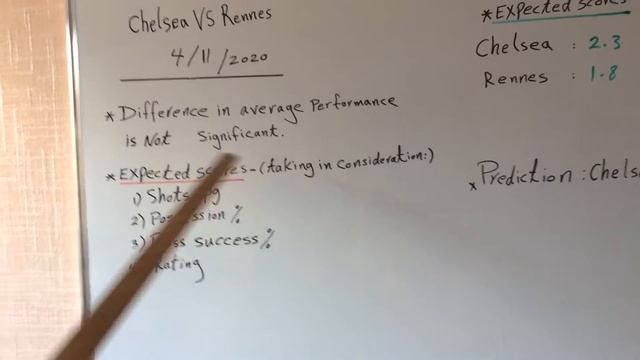 Chelsea VS Rennes
4/11/2020
* Difference in average Performance
is Not Significant.
* EXPected - (taking in Consideration:)
1) Shots
2) %
3) success %
Rating
* EXPected Scores
Chelsea : 2.3
Rennes : 1.8
* Prediction : Chels